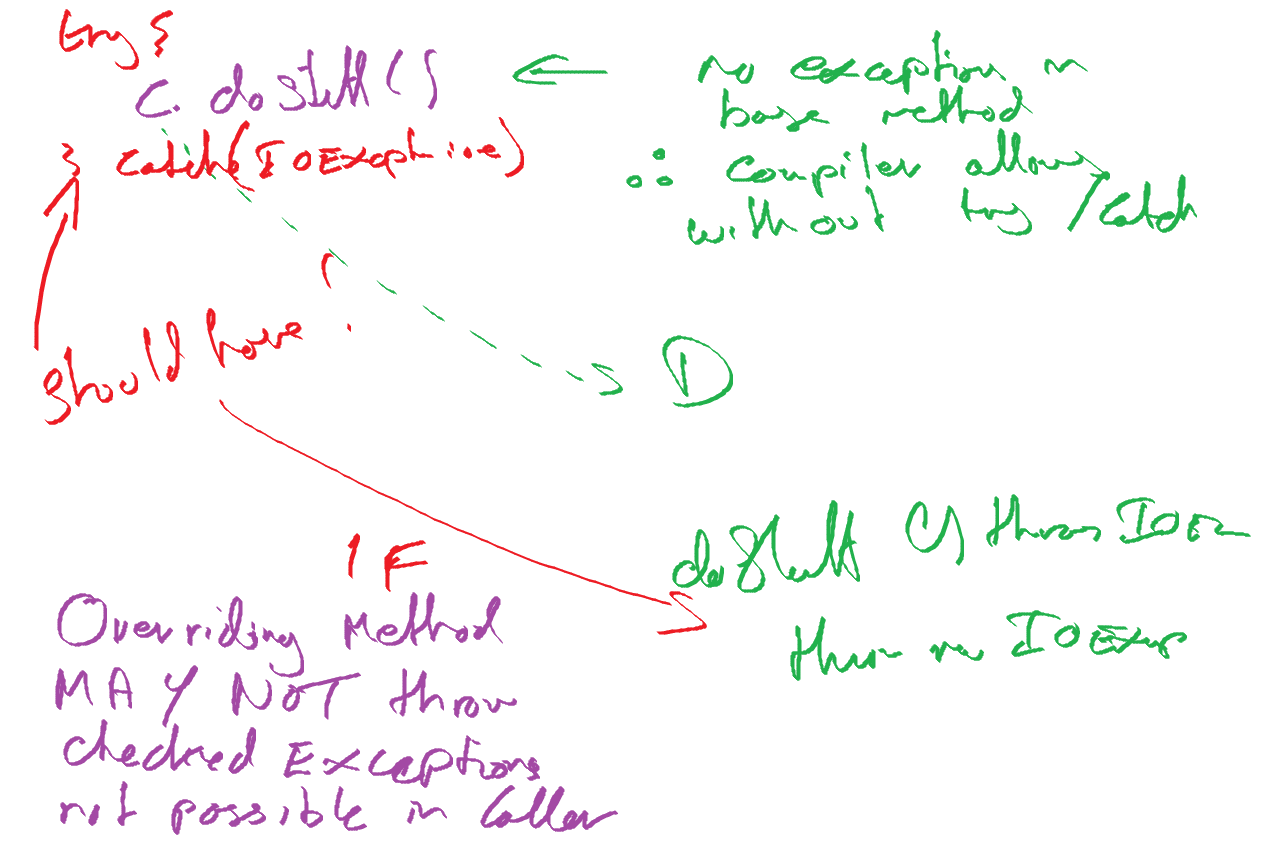 try {
c. doStuff()
} catch(IOException)
no exception in
base method
∴ compiler allows
without try/catch
should have
D
doStuff() throws IOEx
throw new IOExcep
IF
Overriding Method
MAY NOT throw
checked Exceptions
not possible in caller